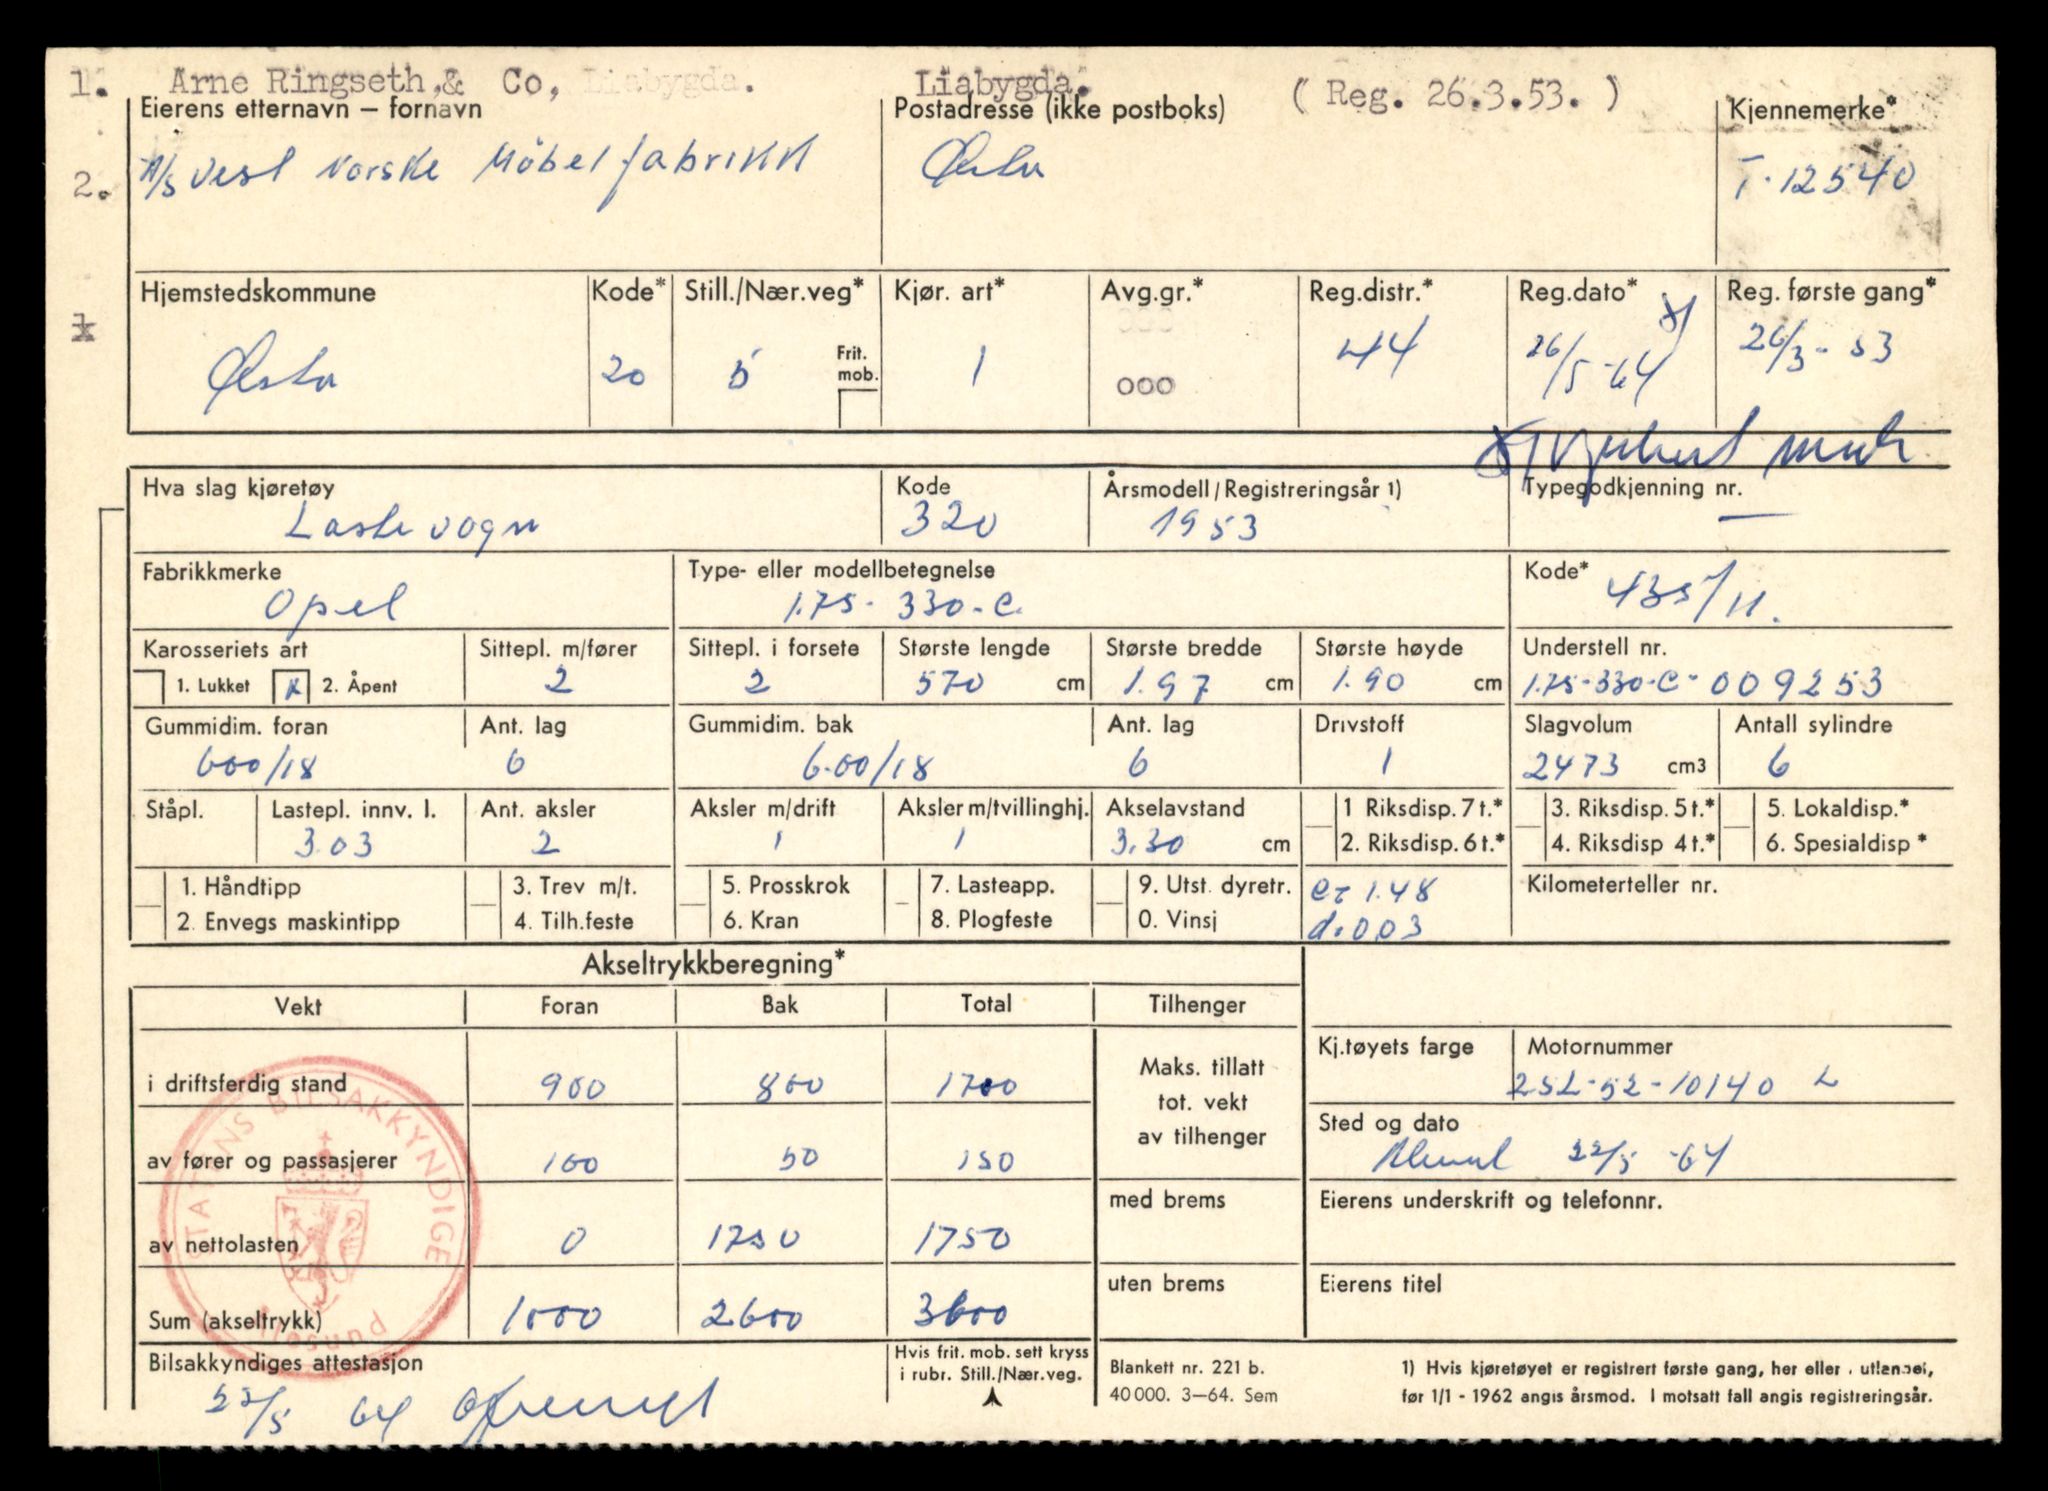 1. Arne Ringseth,& Co, Liabygda. Liabygda. ( Reg. 26.3.53. )
Eierens etternavn – fornavn Postadresse (ikke postboks) Kjennemerke*
2. A/S Vest Norske Möbelfabrikk Ørsta T-12540
Hjemstedskommune Kode* Still./Nær.veg* Kjør. art* Avg.gr.* Reg.distr.* Reg.dato* Reg. første gang*
000
Ørsta 20 5 Frit. mob. 1 000 44 26/5-64 26/3-53
Hva slag kjøretøy Kode Årsmodell/Registreringsår 1) Typegodkjenning nr.
Lastevogn 320 1953 —
Fabrikkmerke Type- eller modellbetegnelse Kode*
Opel 1.75-330-C. 435/11.
Karosseriets art Sittepl. m/fører Sittepl. i forsete Største lengde Største bredde Største høyde Understell nr.
1. Lukket x 2. Åpent 2 2 570 cm 1.97 cm 1.90 cm 1.75-330-C-009253
Gummidim. foran Ant. lag Gummidim. bak Ant. lag Drivstoff Slagvolum Antall sylindre
600/18 6 6.00/18 6 1 2473 cm3 6
Ståpl. Lastepl. innv. l. Ant. aksler Aksler m/drift Aksler m/tvillinghj. Akselavstand 1 Riksdisp. 7 t.* 3. Riksdisp. 5 t.* 5. Lokaldisp.*
3.03 2 1 1 3.30 cm 2. Riksdisp. 6 t.* 4. Riksdisp 4 t.* 6. Spesialdisp*
1. Håndtipp 3. Trev m/t. 5. Prosskrok 7. Lasteapp. 9. Utst. dyretr. c= 1.48 Kilometerteller nr.
2. Envegs maskintipp 4. Tilh.feste 6. Kran 8. Plogfeste 0. Vinsj d. 0.03
Akseltrykkberegning*
Vekt Foran Bak Total Tilhenger
Kj.tøyets farge Motornummer
i driftsferdig stand 900 800 1700 Maks. tillatt tot. vekt av tilhenger 25L-52-10140 L
Sted og dato
av fører og passasjerer 100 50 150 22/5-64
med brems Eierens underskrift og telefonnr.
av nettolasten 0 1750 1750
uten brems Eierens titel
Sum (akseltrykk) 1000 2600 3600
STATENS BILSAKKYNDIGE
Ålesund
Bilsakkyndiges attestasjon Hvis frit. mob. sett kryss i rubr. Still./Nær.veg. Blankett nr. 221 b. 1) Hvis kjøretøyet er registrert første gang, her eller i utlandet,
22/5 64 40 000. 3–64. Sem før 1/1 - 1962 angis årsmod. I motsatt fall angis registreringsår.